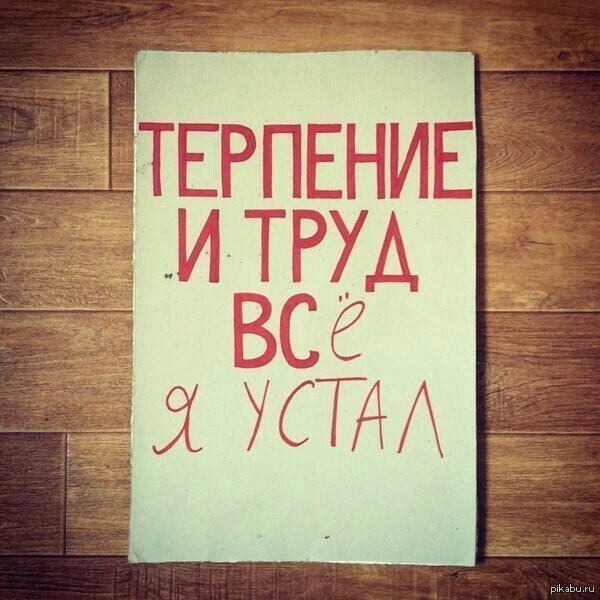 ТЕРПЕНИЕ
И ТРУД
ВСё
я УСТАЛ
pikabu.ru